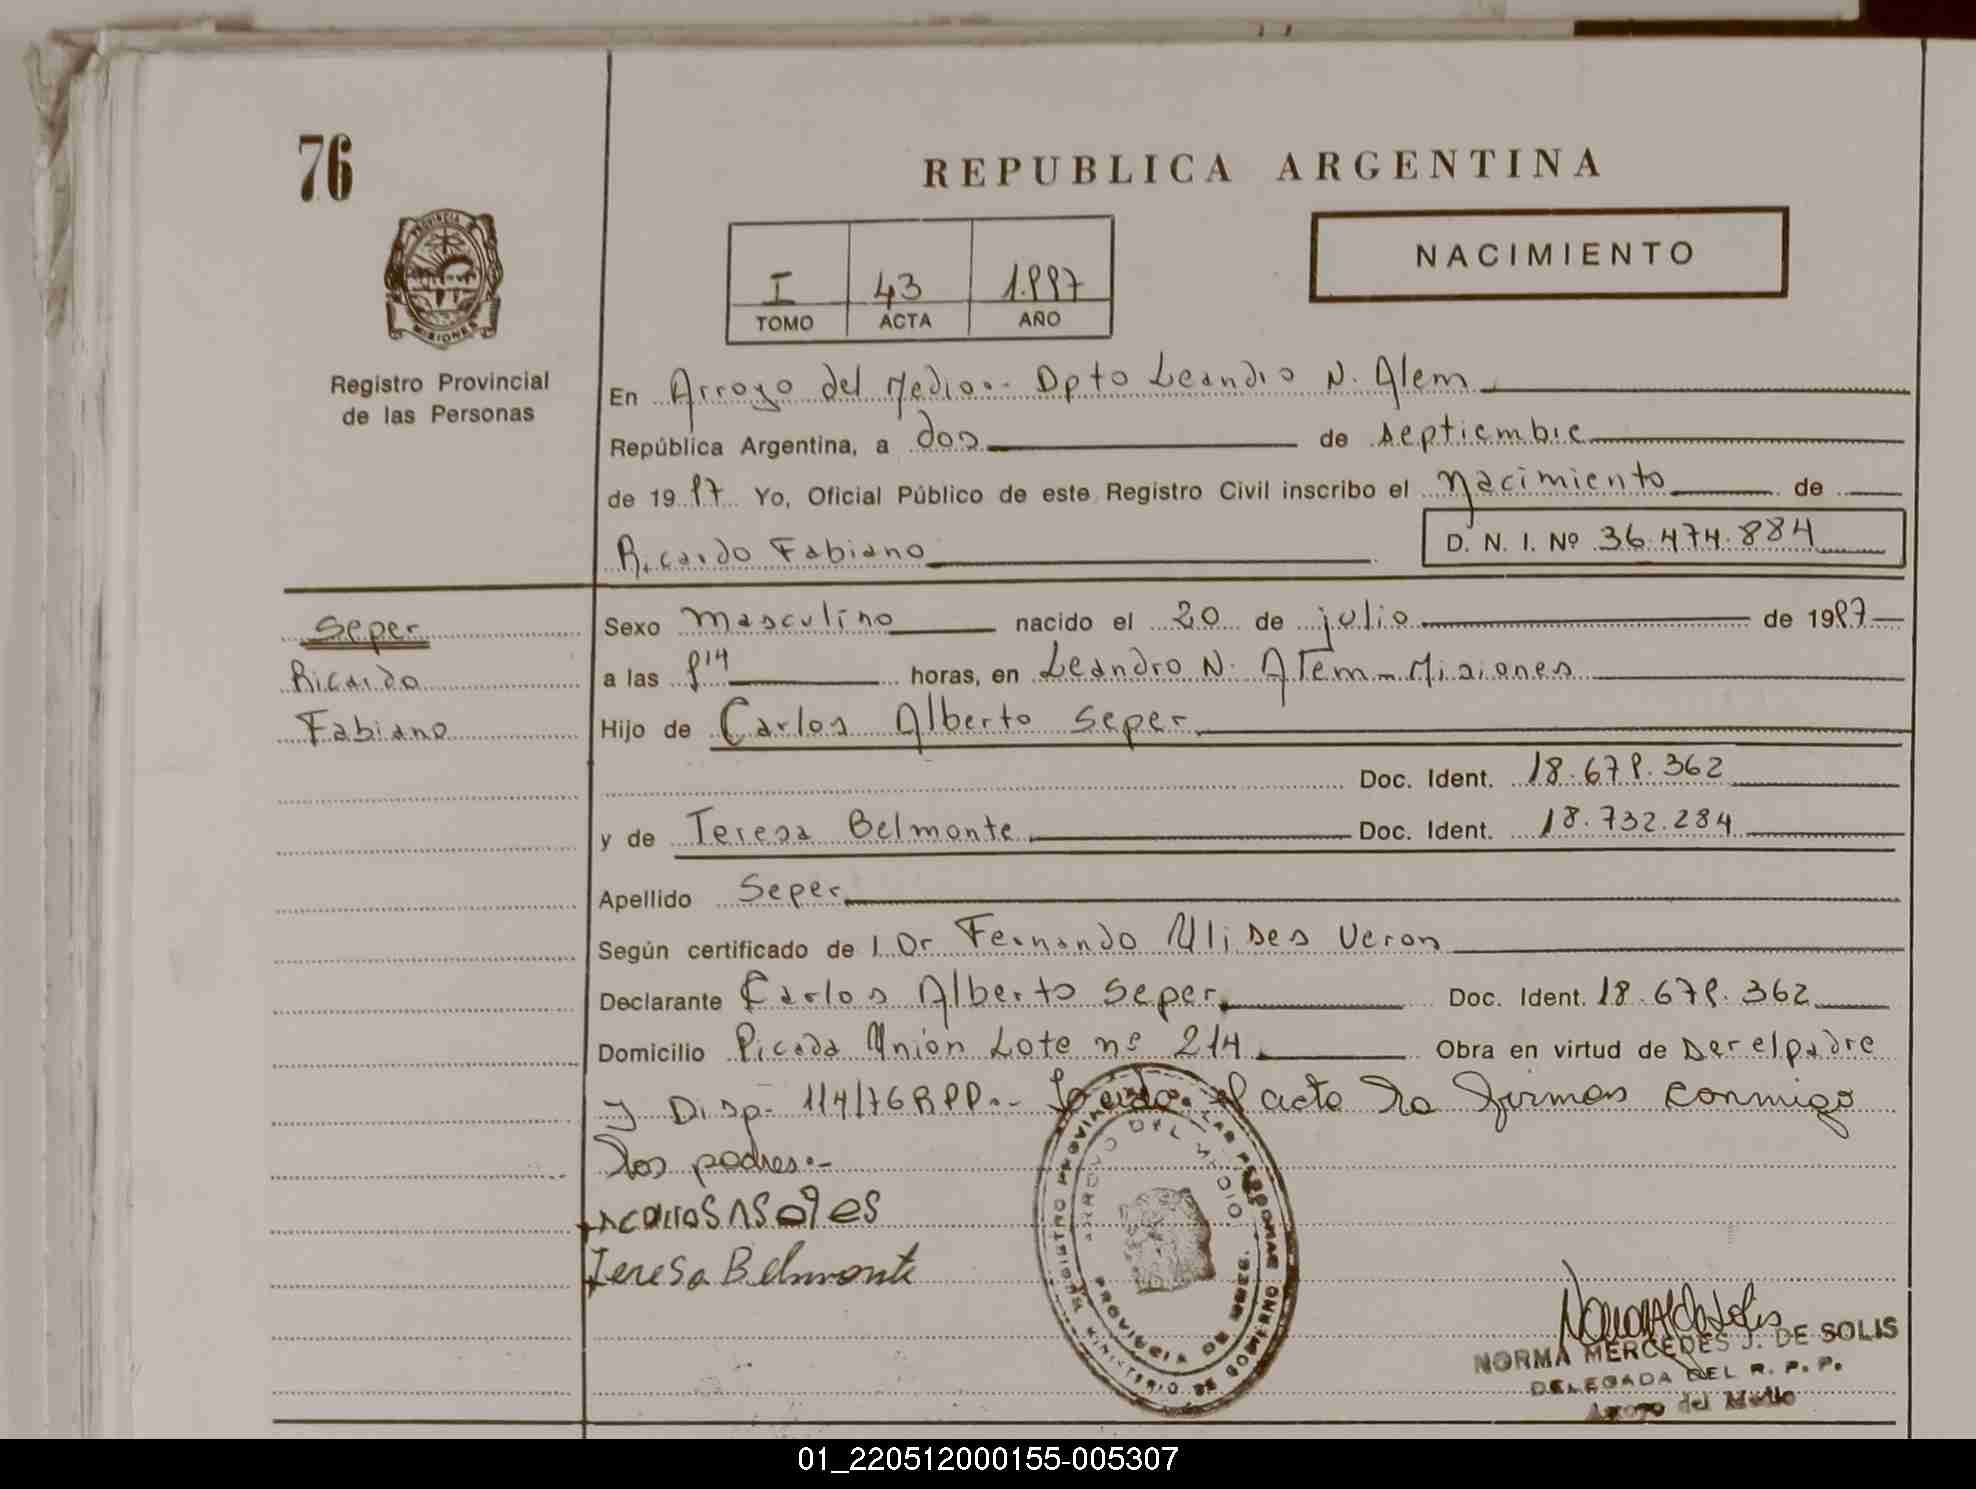 76
REPUBLICA ARGENTINA
PROVINCIA
MISIONES
Registro Provincial
de las Personas
I 43 1.997
TOMO ACTA AÑO
NACIMIENTO
En Arroyo del Medio.- Dpto Leandro N. Alem
República Argentina, a dos de septiembre
de 19 97 Yo, Oficial Público de este Registro Civil inscribo el Nacimiento de
Ricardo Fabiano D. N. I. Nº 36.474.884
Seper
Ricardo
Fabiano
Sexo masculino nacido el 20 de julio de 1997
a las 9'14 horas, en Leandro N. Alem - Misiones
Hijo de Carlos Alberto Seper
Doc. Ident. 18.679.362
y de Teresa Belmonte Doc. Ident. 18.732.284
Apellido Seper
Según certificado de l Dr Fernando Ulises Veron
Declarante Carlos Alberto Seper Doc. Ident. 18.679.362
Domicilio Picada Unión Lote nº 214 Obra en virtud de ser el padre
y Disp. 114/76 RPP.- Leida el acta la firman conmigo
los padres.-
Teresa Belmonte
REGISTRO PROVINCIAL DE LAS PERSONAS
ARROYO DEL MEDIO
PROVINCIA
MINISTERIO DE
NORMA MERCEDES J. DE SOLIS
DELEGADA DEL R. P. P.
Arroyo del Medio
01_220512000155-005307